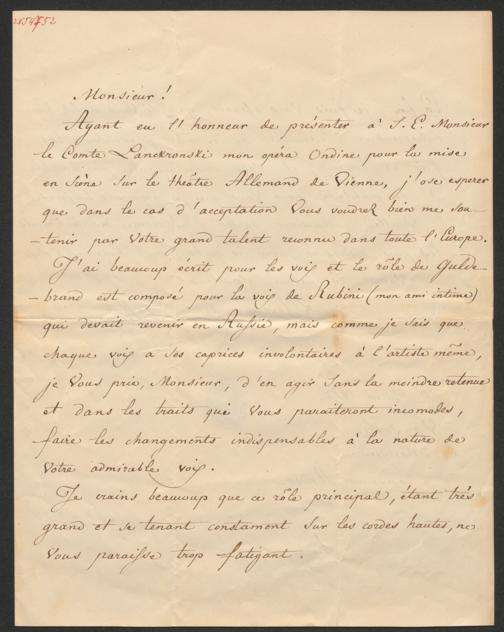 Monsieur!
Ayant eu l'honneur de présenter à S. E. Monsieur
le Comte Lanckronski mon opéra Ondine pour la mise
en Scène sur le théâtre Allemand de Vienne, j'ose esperer
que dans le cas d'acceptation Vous voudrez bien me sou-
-tenir par Votre grand talent reconnu dans toute l'Europe.
J'ai beaucoup écrit pour les voix et le rôle de Gulde-
-brand est composé pour la voix de Rubini (mon ami intime)
qui devait revenir en Russie, mais comme je sais que
chaque voix a ses caprices involontaires à l'artiste même,
je Vous prie, Monsieur, d'en agir sans la moindre retenue
et dans les traits qui Vous paraiteront incomodes,
faire les changements indispensables à la nature de
Votre admirable voix.
Je crains beaucoup que ce rôle principal, étant très
grand et se tenant constament sur les cordes hautes, ne
Vous paraisse trop fatigant.